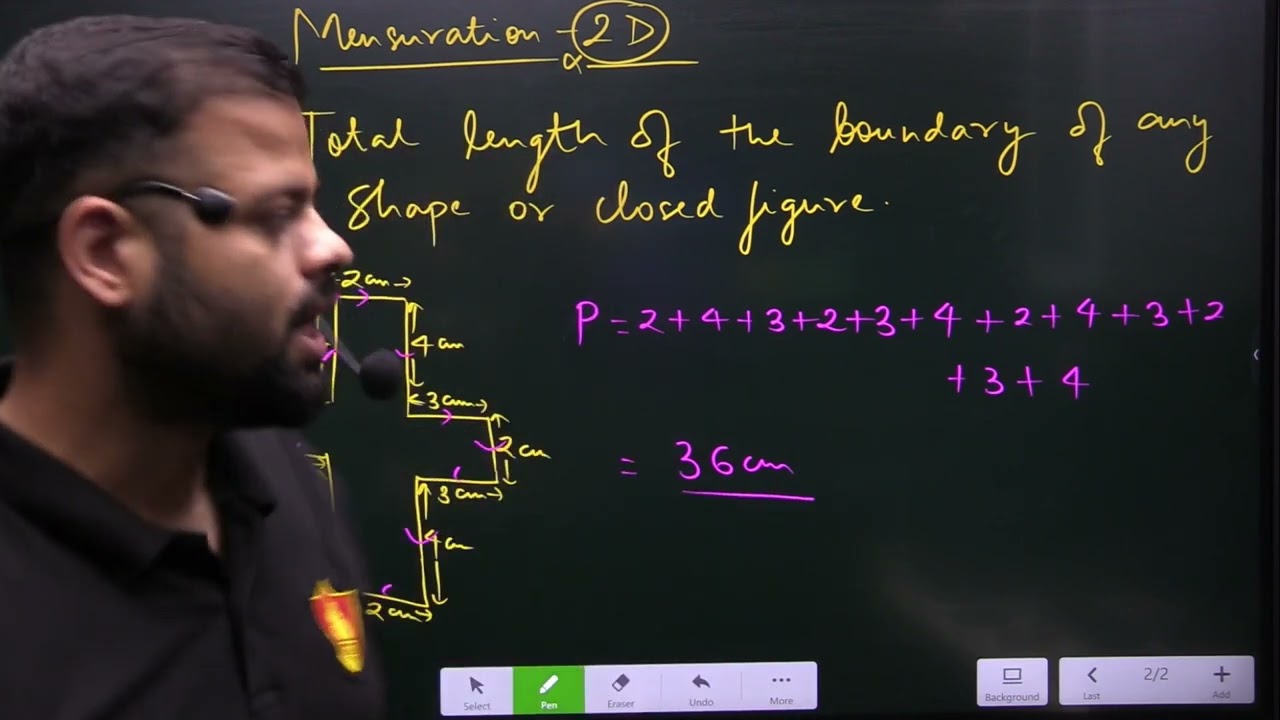 Mensuration - 2D
Total length of the boundary of any
shape or closed figure.
2cm
4cm
3cm
2cm
3cm
4cm
2cm
P = 2+4+3+2+3+4+2+4+3+2
+3+4
= 36cm
Select
Pen
Eraser
Undo
More
Background
Last
2/2
Add